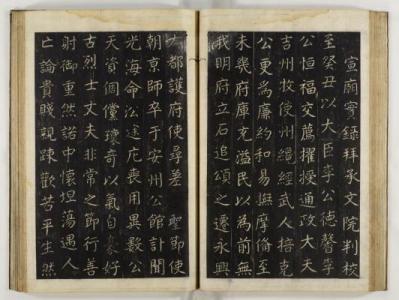 宣廟實錄拜承文院判校
至癸丑以大臣李公德馨李
公恒福交薦擢授通政大夫
吉州牧使州經武人掊克
公更爲廉約和易撫摩倍至
未幾府庫充溢民以爲前無
我明府立石追頌之遷永興
大都護府使尋差 聖節使
朝京師卒于安州公館訃聞
光海命沿途庀喪用異數公
天資倜儻瓌奇以氣自豪好
古烈士丈夫非常之節行善
射御重然諾中懷坦蕩遇人
亡論貴賤親疎歡苦平生然